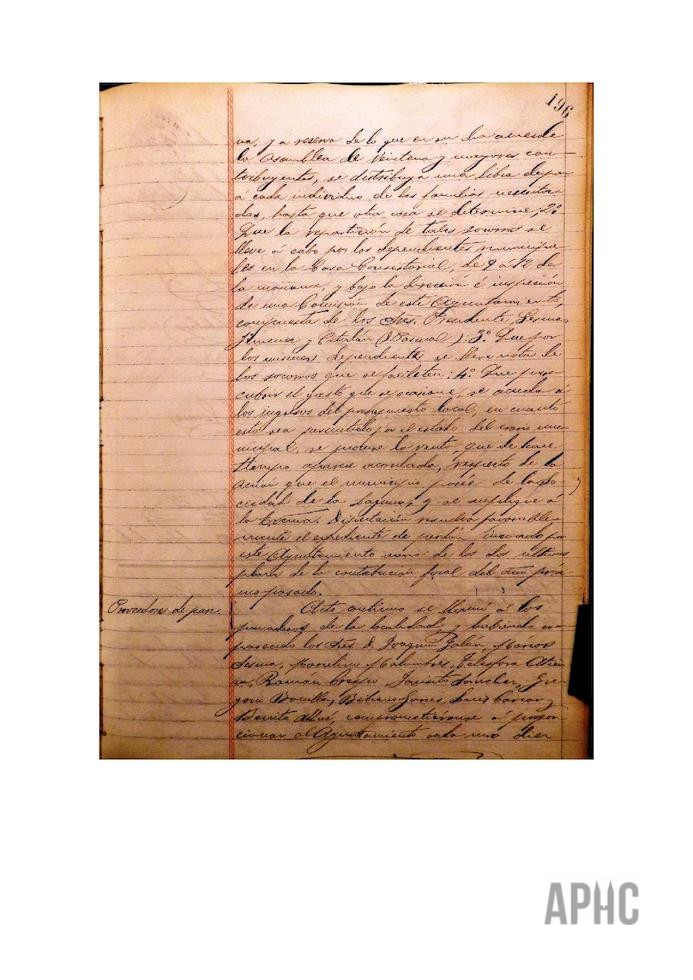 196
va, y á reserva de lo que en su dia acuerde
la Asamblea de Veintena y mayores con-
tribuyentes, se distribuya una libra de pan
á cada individuo de las familias necesita-
das, hasta que otra cosa se determine; 2º
Que la repartición de tales socorros se
lleve á cabo por los dependientes municipa-
les en la Casa Consistorial, de 9 á 12 de
la mañana, y bajo la dirección é inspección
de una Comisión de este Ayuntamiento,
compuesta de los Sres. Presidente, Lerma,
Jimenez y Catalán (D. Pascual): 3º. Que por
los mismos dependientes se lleve nota de
los socorros que se faciliten: 4º. Que para
cubrir el gasto que se ocasione, se acuda á
los ingresos del presupuesto local, en cuanto
esto sea permitido por el estado del erario mu-
nicipal, se procure la venta, que de hace
tiempo aparece acordada, respecto de la
acción que el municipio posee de la So-
ciedad de la Laguna, y se suplique á
la Excma. Diputación resuelva favorable-
mente el expediente de perdón incoado por
este Ayuntamiento de los dos últimos
plazos de la contribución foral del año próxi-
mo pasado.
Proveedores de pan.
Acto continuo se llamó á los
panaderos de la localidad, y habiendo com-
parecido los Sres. D. Joaquin Galán, Marcos
Sesma, Marcelino Malumbres, Telesforo
Román Crespo, Jacinto Sanchez, Gre-
gorio Bonilla, Bibiano
Benito comprometiéronse á propor-
cionar al Ayuntamiento cada uno diez
APHC